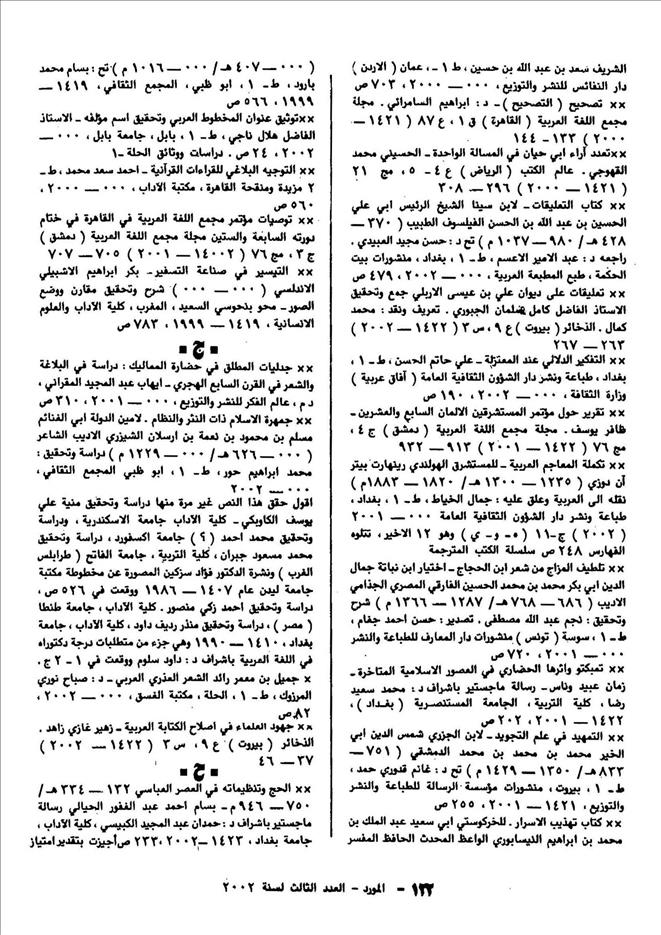 الشريف سعد بن عبد الله بن حسين، ط ١ -، عمان ( الاردن )
دار النفائس للنشر والتوزيع، ٠٠٠ — ٢٠٠٠، ٧٠٣ ص
×× تصحيح ( التصحيح ) - د : ابراهيم السامرائي. مجلة
مجمع اللغة العربية ( القاهرة ) ق ١، ع ٨٧ ( ١٤٢١ —
٢٠٠٠ ) ١٣٣ - ١٤٤
××تعدد آراء ابي حيان في المسالة الواحدة - الحسيني محمد
القهوجي. عالم الكتب ( الرياض ) ع ٤ - ٥، مج ٢١
( ١٤٢١ — ٢٠٠٠ ) ٢٩٦ — ٣٠٨
×× كتاب التعليقات - لابن سينا الشيخ الرئيس ابي علي
الحسين بن عبد الله بن الحسن الفيلسوف الطبيب ( ٣٧٠ —
٤٢٨ هـ / ٩٨٠ — ١٠٣٧ م ) تح د : حسن مجيد العبيدي.
راجعه د : عبد الامير الاعسم، ط ١، بغداد، منشورات بيت
الحكمة، طبع المطبعة العربية، ٠٠٠ — ٢٠٠٢، ٤٧٩ ص
×× تعليقات على ديوان علي بن عيسى الاربلي جمع وتحقيق
الاستاذ الفاضل كامل سلمان الجبوري. تعريف ونقد : محمد
كمال. الذخائر ( بيروت ) ع ٩، س ٣ ( ١٤٢٢ — ٢٠٠٢ )
٢٦٣ — ٢٦٧
×× التفكير الدلالي عند المعتزلة - علي حاتم الحسن، ط ١،
بغداد، طباعة ونشر دار الشؤون الثقافية العامة ( آفاق عربية )
وزارة الثقافة، ٠٠٠ — ٢٠٠٢، ١٩٠ ص
×× تقرير حول مؤتمر المستشرقين الالمان السابع والعشرين -
ظافر يوسف. مجلة مجمع اللغة العربية ( دمشق ) ج ٤،
مج ٧٦ ( ١٤٢٢ — ٢٠٠١ ) ٩١٣ — ٩٣٢
×× تكملة المعاجم العربية - للمستشرق الهولندي رينهارت بيتر
آن دوزي ( ١٢٣٥ — ١٣٠٠ هـ / ١٨٢٠ — ١٨٨٣م )
نقله الى العربية وعلق عليه : جمال الخياط، ط ١، بغداد،
طباعة ونشر دار الشؤون الثقافية العامة ٠٠٠ — ٢٠٠١
( ٢٠٠٢ ) ج-١١ ( ه - و - ي ) وهو ١٢ الاخير، تتلوه
الفهارس ٢٤٨ ص سلسلة الكتب المترجمة
×× تلطيف المزاج من شعر ابن الحجاج - اختيار ابن نباتة جمال
الدين ابي بكر محمد بن محمد الحسين الفارقي المصري الجذامي
الاديب ( ٦٨٦ — ٧٦٨ هـ / ١٢٨٧ — ١٣٦٦ م ) شرح
وتحقيق : نجم عبد الله مصطفى. تصدير : حسن احمد جغام،
ط - ١، سوسة ( تونس ) منشورات دار المعارف للطباعة والنشر
٠٠٠ — ٢٠٠١، ٧٢٠ ص
×× تمبكتو واثرها الحضاري في العصور الاسلامية المتاخرة -
زمان عبيد وناس - رسالة ماجستير باشراف د : محمد سعيد
رضا، كلية التربية، الجامعة المستنصرية ( بغداد )،
١٤٢٢ — ٢٠٠١، ٢٠٢ ص
×× التمهيد في علم التجويد - لابن الجزري شمس الدين ابي
الخير محمد بن محمد بن محمد الدمشقي ( ٧٥١ —
٨٣٣ هـ / ١٣٥٠ — ١٤٢٩ م ) تح د : غانم قدوري حمد،
ط - ١، بيروت، منشورات مؤسسة الرسالة للطباعة والنشر
والتوزيع، ١٤٢١ — ٢٠٠١، ٢٥٥ ص
×× كتاب تهذيب الاسرار. للخركوستي ابي سعيد عبد الملك بن
محمد بن ابراهيم النيسابوري الواعظ المحدث الحافظ المفسر
( ٠٠٠ — ٤٠٧ هـ / ٠٠٠ — ١٠١٦ م ) تح : بسام محمد
بارود، ط - ١، ابو ظبي، المجمع الثقافي، ١٤١٩ —
١٩٩٩، ٥٦٦ ص
××توثيق عنوان المخطوط العربي وتحقيق اسم مؤلفه - الاستاذ
الفاضل هلال ناجي، ط - ١، بابل، جامعة بابل، ٠٠٠ —
٢٠٠٢، ٢٤ ص. دراسات ووثائق الحلة -١
×× التوجيه البلاغي للقراءات القرآنية - احمد سعد محمد، ط -
٢ مزيدة ومنقحة القاهرة، مكتبة الآداب، ٠٠٠ — ٢٠٠٠،
٥٦٠ ص
×× توصيات مؤتمر مجمع اللغة العربية في القاهرة في ختام
دورته السابعة والستين مجلة مجمع اللغة العربية ( دمشق )
ج ٣، مج ٧٦ ( ١٤٠٠٢ — ٢٠٠١ ) ٧٠٥ — ٧٠٧
×× التيسير في صناعة التسفير - بكر ابراهيم الاشبيلي
الاندلسي ( ٠٠٠ — ٠٠٠ ) شرح وتحقيق مقارن ووضع
الصور - محو بنحوسي السعيد، المغرب، كلية الآداب والعلوم
الانسانية، ١٤١٩ — ١٩٩٩، ٧٨٣ ص
■ ج ■
×× جدليات المطلق في حضارة المماليك : دراسة في البلاغة
والشعر في القرن السابع الهجري - ايهاب عبد المجيد المقراني،
د م، عالم الفكر للنشر والتوزيع، ٠٠٠ — ٢٠٠١، ٣١٠ ص
×× جمهرة الاسلام ذات النثر والنظام. لامين الدولة ابي الغنائم
مسلم بن محمود بن نعمة بن ارسلان الشيزري الاديب الشاعر
( ٠٠٠ — ٦٢٦ هـ / ٠٠٠ — ١٢٢٩ م ) دراسة وتحقيق :
محمد ابراهيم حور، ط - ١، ابو ظبي المجمع الثقافي،
٠٠٠ — ٢٠٠٢
اقول حقق هذا النص غير مرة منها دراسة وتحقيق منية علي
يوسف الكاوبكي - كلية الآداب جامعة الاسكندرية، ودراسة
وتحقيق محمد احمد ( ؟ ) جامعة اكسفورد، دراسة وتحقيق
محمد مسعود جبران، كلية التربية، جامعة الفاتح ( طرابلس
الغرب ) ونشرة الدكتور فؤاد سزكين المصورة عن مخطوطة مكتبة
جامعة ليدن عام ١٤٠٧ — ١٩٨٦ ووقعت في ٥٢٦ ص،
دراسة وتحقيق احمد زكي منصور. كلية الآداب، جامعة طنطا
( مصر )، دراسة وتحقيق منذر رديف داود، كلية الآداب،
بغداد، ١٤١٠ — ١٩٩٠ وهي جزء من متطلبات درجة دكتوراه
في اللغة العربية باشراف د : داود سلوم ووقعت في ١ - ٢ ج.
× جميل بن معمر رائد الشعر العذري العربي - د : صباح نوري
المرزوك، ط - ١، الحلة، مكتبة الغسق، ٠٠٠ — ٢٠٠٢،
٨٢ ص
×× جهود العلماء في اصلاح الكتابة العربية - زهير غازي زاهد.
الذخائر ( بيروت ) ع ٩، س ٣ ( ١٤٢٢ — ٢٠٠٢ )
٣٧ — ٤٦
■ ح ■
×× الحج وتنظيماته في العصر العباسي ١٣٢ — ٣٣٤ هـ /
٧٥٠ — ٩٤٦ م - بسام احمد عبد الغفور الحيالي رسالة
ماجستير باشراف د : حمدان عبد المجيد الكبيسي، كلية الآداب،
جامعة بغداد، ١٤٢٣ — ٢٠٠٢، ٢٣٣ ص أجيزت بتقدير امتياز
١٢٢ - المورد - العدد الثالث لسنة ٢٠٠٢